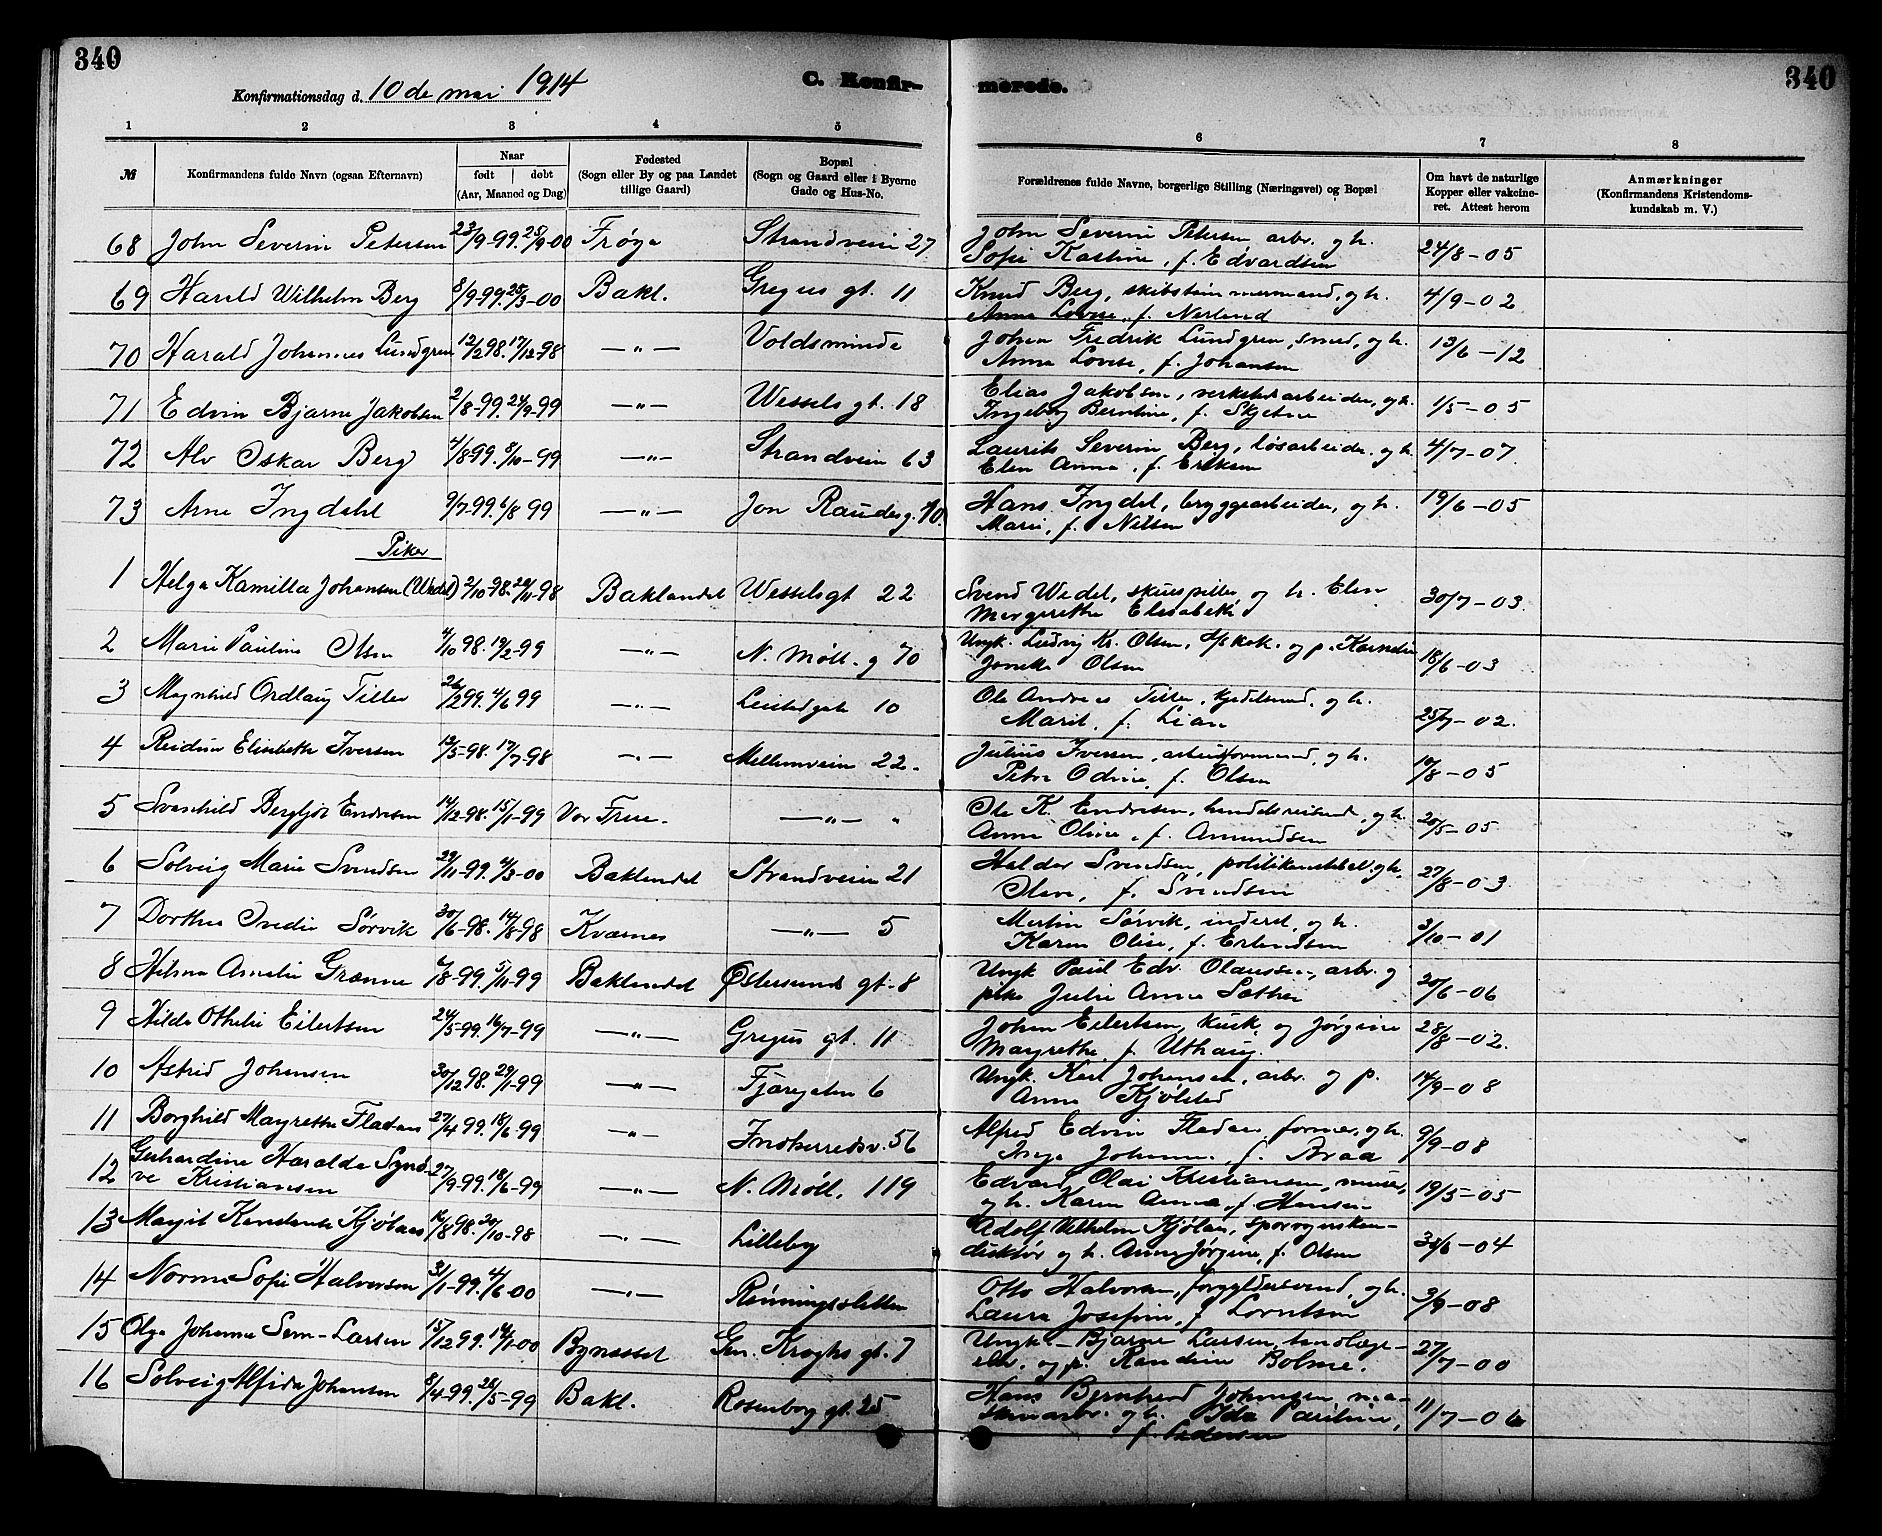 340
340
Konfirmationsdag d. 10 de mai 1914
C. Konfirmerede.
1 2 3 4 5 6 7 8
№ Konfirmandens fulde Navn (ogsaa Efternavn)
Naar født døbt (Aar, Maaned og Dag)
Fødested (Sogn eller By og paa Landet tillige Gaard)
Bopæl (Sogn og Gaard eller i Byerne Gade og Hus-No.
Forældrenes fulde Navne, borgerlige Stilling (Næringsvei) og Bopæl
Om havt de naturlige Kopper eller vakcineret. Attest herom
Anmærkninger (Konfirmandens Kristendomskundskab m. V.)
68 John Severin Petersen 23/9-99. 25/9-00 Frøya Strandveien 27 John Severin Petersen arbr. og h. Sofie Kastine, f. Edvardsen 24/8-05
69 Harald Wilhelm Berg 8/9-99. 25/3-00 Bakl. Gregus gt. 11 Knud Berg, skibstømmermand, og h. Anna Lovise, f. Nerland 4/9-02
70 Harald Johannes Lundgren 12/2 98. 17/12-98 —"— Voldsminde Johan Fredrik Lundgren, smed, og h. Anna Lovise, f. Johansen 13/6-12
71 Edvin Bjarne Jakobsen 2/8-99. 24/9-99 —"— Wessels gt. 18 Elias Jakobsen, verkstedarbeider, og h. Ingeborg Berntine, f. Skjetne 1/5-05
72 Alv Oskar Berg 4/8-99. 8/10-99 —"— Strandveien 63 Laurits Severin Berg, løsarbeider. og h. Elen Anna, f. Eriksen 4/7-07.
73 Arne Ingdahl 9/7-99. 6/8 99 —"— Jon Raudes g. 10. Hans Ingdal, bryggearbeider, og h. Marie, f. Nilsen 19/6-05
Piker
1 Helga Kamilla Johansen (Wedel) 2/10-98. 20/11-98 Baklandet Wessels gt 22 Svend Wedel, skuespiller og h. Elen Margrethe Elisabeth 30/7-03.
2 Marie Pauline Olsen 4/10 98. 19/2-99 —"— N. Møll. g 70 Ungk. Ludvig Kr. Olsen, og p. Kornelia Jonette Olsen 18/6-03
3 Magnhild Ordlaug Tiller 26/2 99. 4/6 99 —"— 10 Ole Andreas Tiller, kjedelsmed, og h. Marit, f. Lian 25/7-02.
4 Reidun Elisabeth Iversen 13/5-98. 17/7-98 —"— Mellemveien 22. Julius Iversen, arbeidsformand, og h. Petra Odine, f. Olsen 10/8-05
5 Svanhild Bergljot Endresen 14/12-98. 15/1-99 Vor Frue. —"— " Ole K. Endresen, handelsreisende, og h. Anna Oline, f. Amundsen 20/5-05
6 Solveig Marie Svendsen 29/11-99. 4/3-00 Baklandet Strandveien 21 Haldor Svendsen, politikonstabel. og h. Olava, f. Svendsen 27/8-03
7 Dorthea Ovedie Sørvik 30/6-98. 14/8-98 Kværnes —"— 5 Martin Sørvik, inderst, og h. Karen Olise, f. Erlandsen 3/10-01
8 Hilma Amalie Grønne 6/8-99. 5/11-99 Baklandet Østersunds gt. 8 Ungk. Paul Edv. Olaussen, arbr. og pike Julie Anna Sæther 20/6-06
9 Hilda Othelie Eilertsen 24/5-99. 16/7-99 —"— Gregus gt. 11 Johan Eilertsen, kusk, og Jørgine Margrethe, f. Uthaug. 28/8-02.
10 Astrid Johansen 30/12 98. 29/1-99 —"— Fjæregaten 6 Ungk. Karl Johansen, arbr. og p. Anna Kjølstad 14/9-08
11 Borghild Margrethe Fladaas 27/4 99. 18/6-99 —"— Indherredsv. 56 Alfred Edvin Fladaas, former, og h. Inga Johanna, f. Braa 9/9-08
12 Gerhardine Haralda Synøve Kristiansen 27/9-99. 18/6-99 —"— N. Møll. 119 Edvard Olai Kristiansen, murer, og h. Karen Anna, f. Hansen 19/5-05
13 Margit Konstanse Kjølaas 14/8 98. 30/10-98 —"— Lilleby Adolf Wilhelm Kjølaas, sporvognskonduktør og h. Anna Jørgine, f. Olsen 30/6-04
14 Norma Sofie Halvorsen 31/1-99. 4/6-00 —"— Rønningsletten Otto Halvorsen, forgyldersvend, og h. Laura Josefine, f. Lorntsen 3/9-08
15 Olga Johanna Sem-Larsen 15/12 99. 14/1-00 Bynesset Gen. Kroghs gt. 7 Ungk. Bjarne Larsen, tandlægeelev, og p. Randine Bolme. 27/7-00
16 Solveig Alfida Johansen 8/4-99. 28/5-99 Bakl. Rosenborg gt. 25 Hans Bernhard Johansen, maskinarbr. og h. Ida Pauline, f. Pedersen 11/7-06